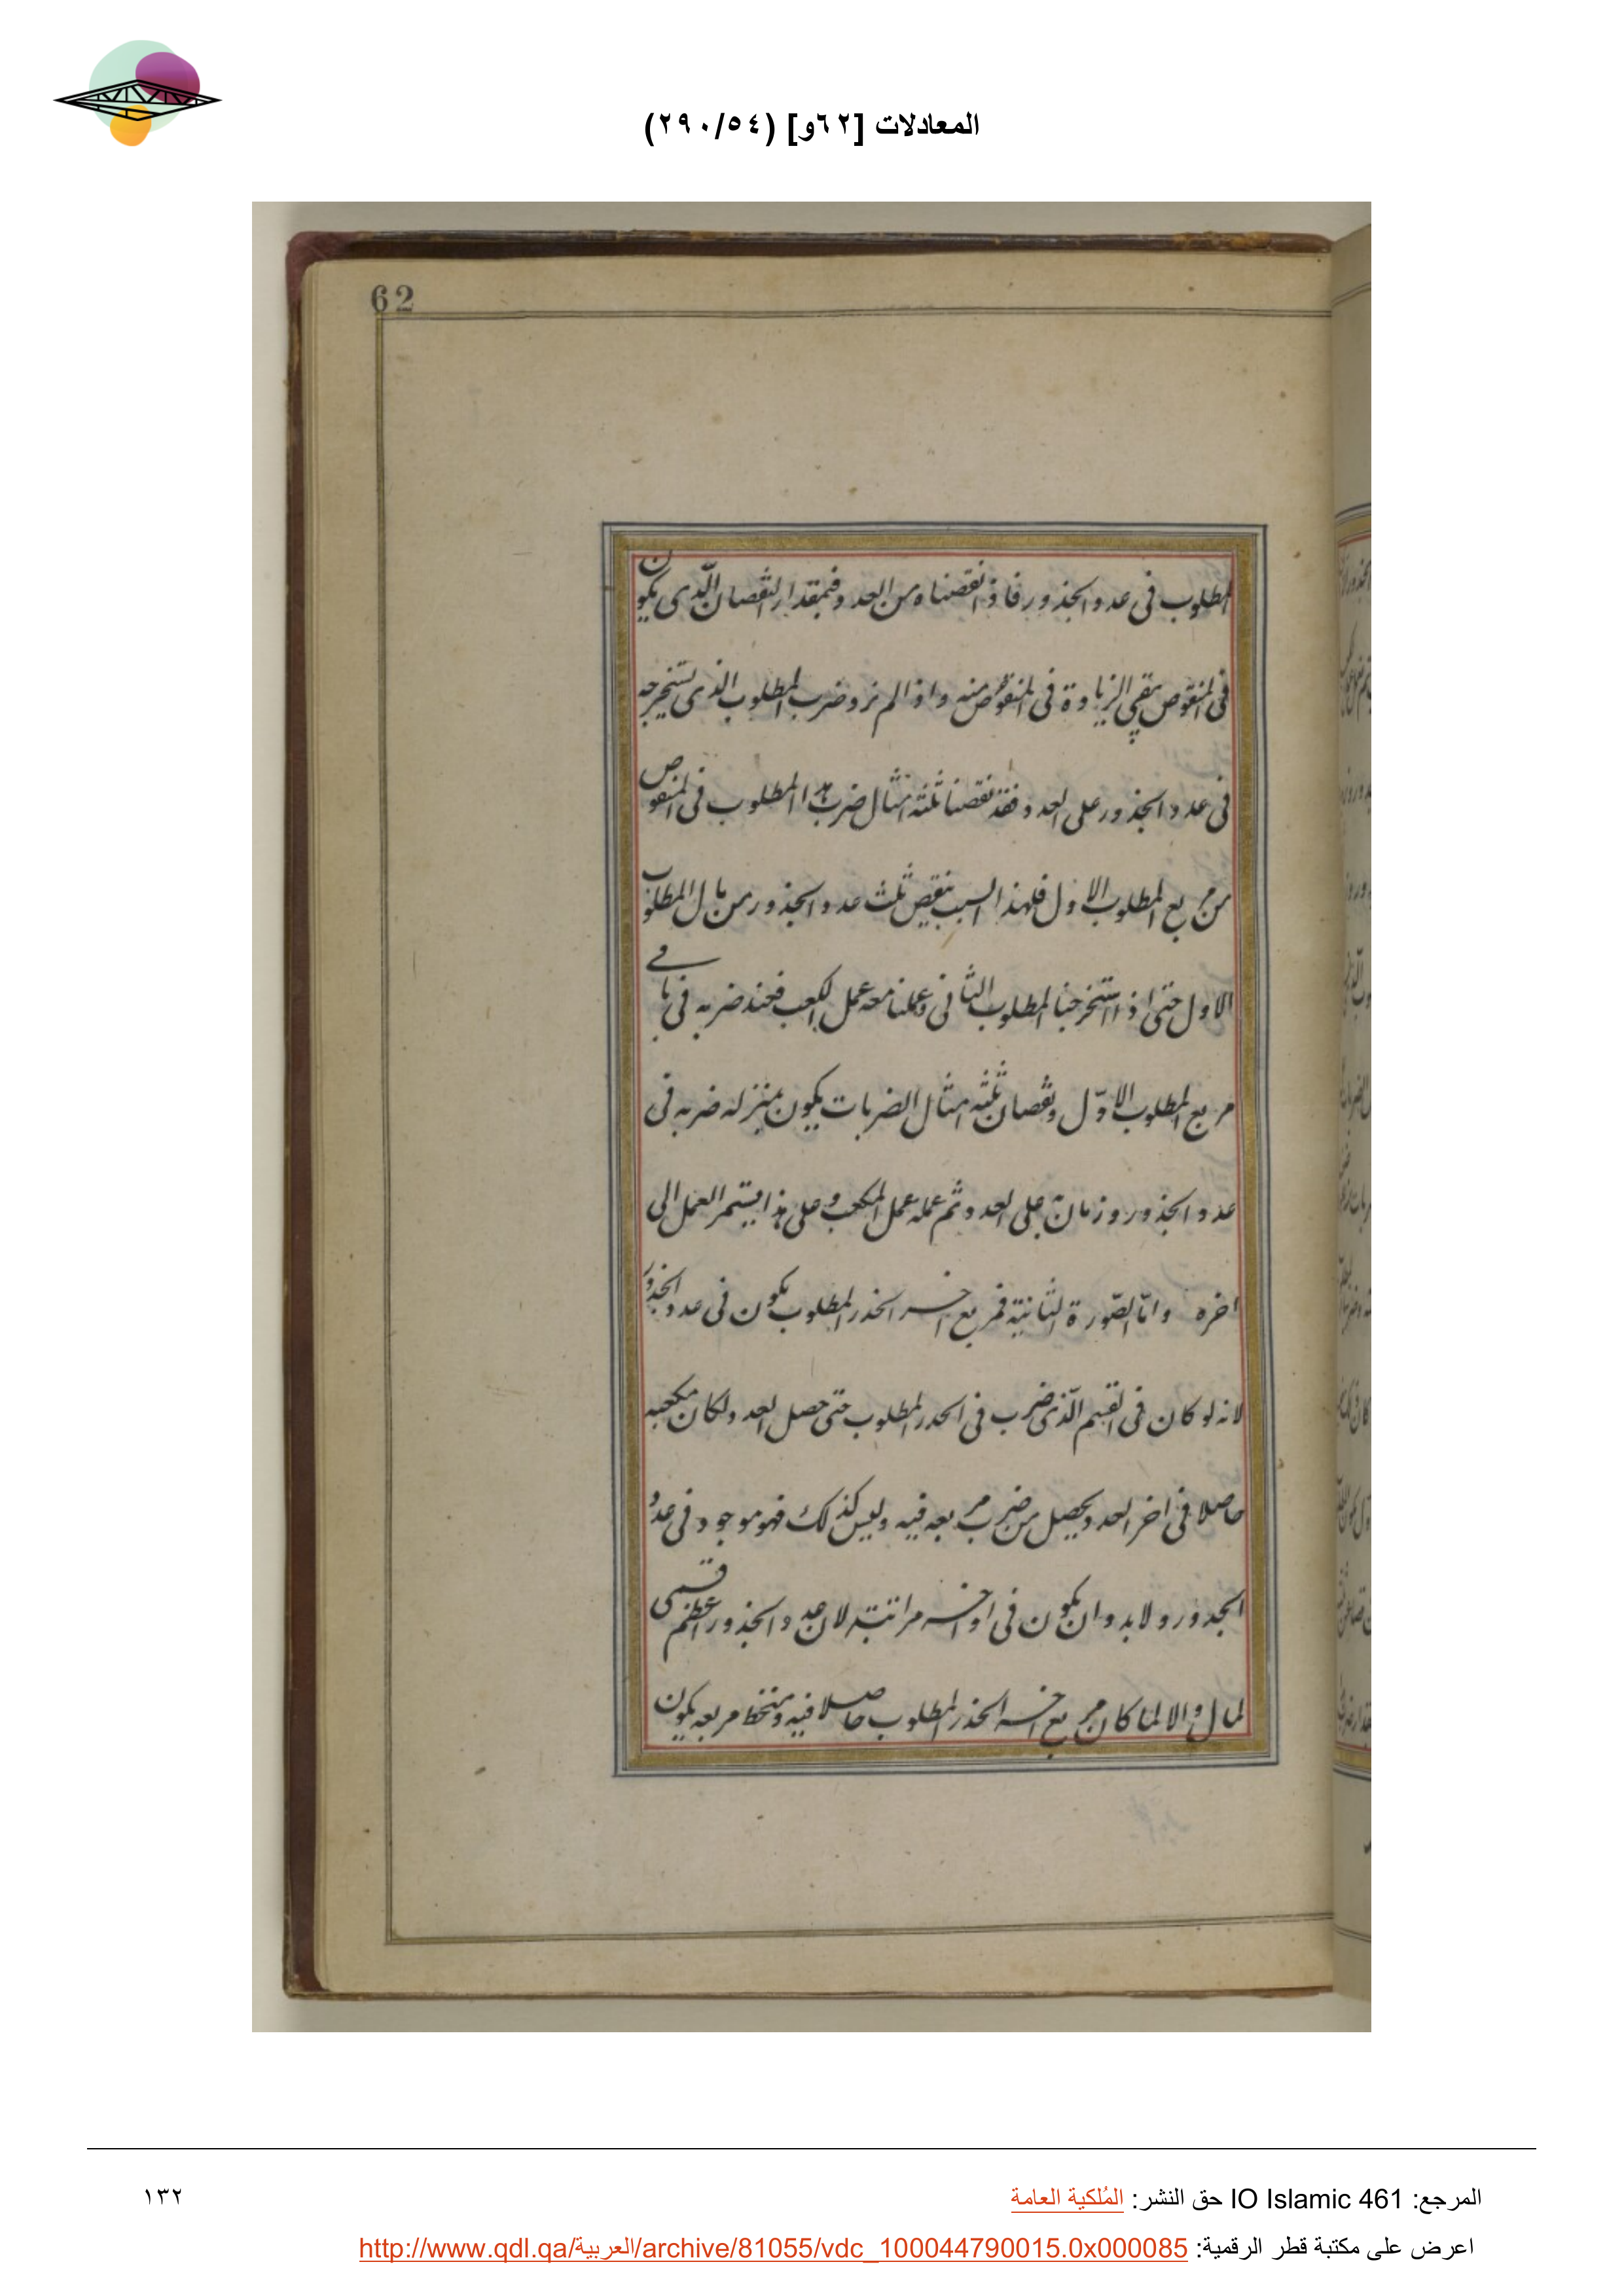 المعادلات [٦٢و] (٢٩٠/٥٤)
62
المطلوب فى عدد الجذور فاذا نقصناه من العدد فبمقدار النقصان الّذى يكون
فى المنقوص يبقى الزيادة فى المنقوص منه واذا لم نزد ضرب المطلوب الذى نستخرجه
فى عدد الجذور على العدد فقد نقصنا ثلثة امثال ضرب هذا المطلوب فى المنقوص
من مربع المطلوب الاول فلهذا السبب ينقص ثلث عدد الجذور من مال المطلوب
الاول حتى اذا استخرجنا المطلوب الثانى وعملنا معه عمل الكعب فعند ضربه فى باقى
مربع المطلوب الاوّل ونقصان ثلثه امثال الضربات يكون بمنزله ضربه فى
عدد الجذور و على العدد ثم عمله عمل المكعب وعلى هذا يستمر العمل الى
اخره وامّا الصّورة الثّانية فمربع اخر الجذر المطلوب يكون فى عدد الجذور
لانه لو كان فى القسم الّذى ضرب فى الجدر المطلوب حتى حصل العدد ولكان مكعبه
حاصلا فى اخر العدد ويحصل من ضرب مربعه فيه وليس كذلك فهو موجود فى عدد
الجدور ولا بد وان يكون فى اواخر مراتبته لان عدد الجذور اعظم قسمى
لمال والا لما كان مربع اخر الجذر المطلوب حاصلا فيه ومنحط مربعه يكون
المرجع: IO Islamic 461 حق النشر: المُلكية العامة
١٣٢
اعرض على مكتبة قطر الرقمية: http://www.qdl.qa/العربية/archive/81055/vdc_100044790015.0x000085